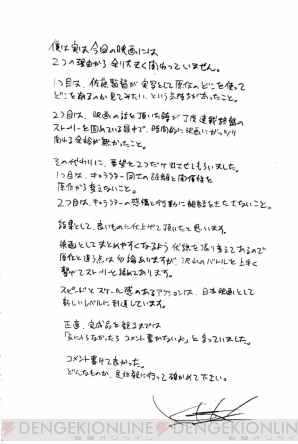 僕は実は今回の映画には
2つの理由から余り大きく関わっていません。
1つ目は、佐藤監督が実写として原作のどこを使って
どこを削るのか見てみたい、という気持ちがあったこと。
2つ目は、映画の話を頂いた時が丁度連載
ストーリーを固めている最中で、時間的に映画にガッツリ
関わる余裕が無かったこと。
その代わりに、要望を2つだけ出させてもらいました。
1つ目は、キャラクター同士の距離と関係性を
原作から変えないこと。
2つ目は、キャラクターの感情と行動に齟齬をきたさないこと。
結果として、良いものに仕上げて頂けたと思います。
映画としてまとめやすくなるよう伏線を張り替えてあるので
原作と違う点は勿論ありますが、沢山のバトルを上手く
繋げてストーリーを組めてあります。
スピードとスケール感のあるアクションは、日本映画として
新しいレベルに到達しています。
正直、完成品を観るまでは
「気に入らなかったらコメント書かないよ」と言っていました。
コメント書けて良かった。
どんなものか、是非観に行って確かめて下さい。
DENGEKIONLINE
電撃オンライン